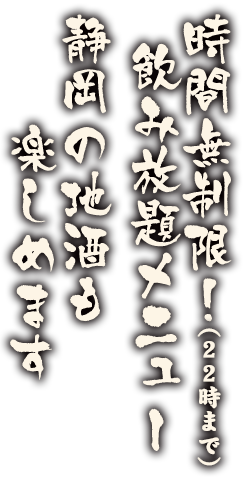 時間無制限!(22時まで)
飲み放題メニュー
静岡の地酒も
楽しめます